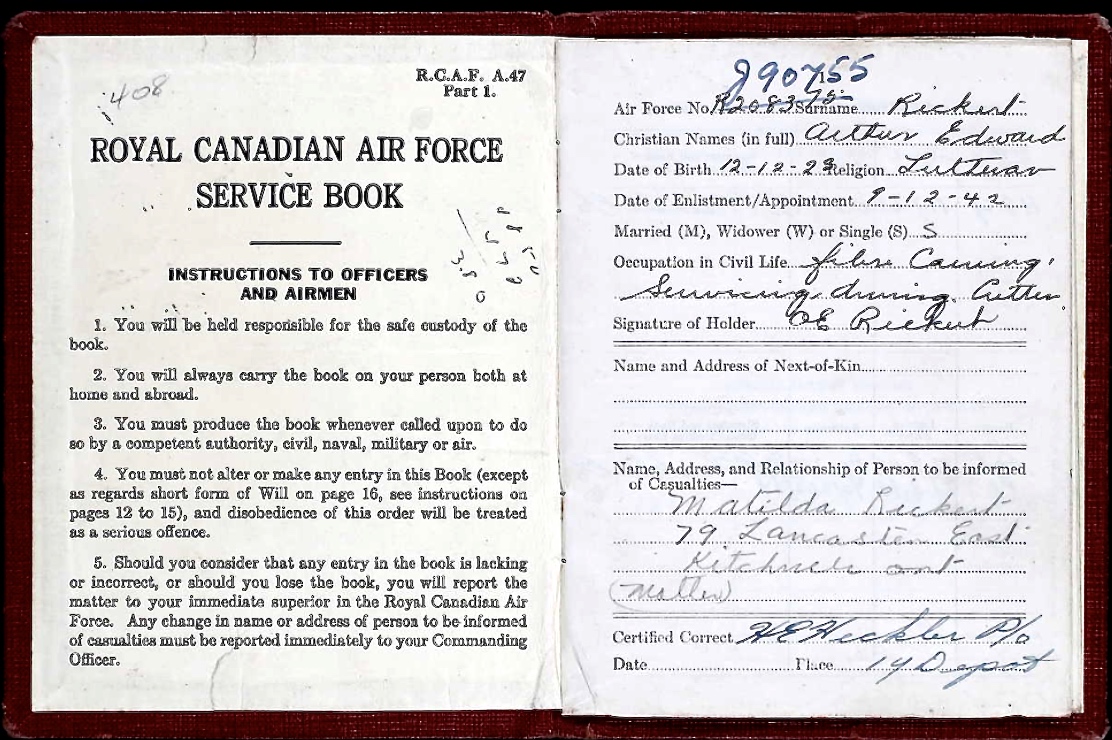 408
R.C.A.F. A.47
Part 1.
ROYAL CANADIAN AIR FORCE
SERVICE BOOK
INSTRUCTIONS TO OFFICERS
AND AIRMEN
1. You will be held responsible for the safe custody of the
book.
2. You will always carry the book on your person both at
home and abroad.
3. You must produce the book whenever called upon to do
so by a competent authority, civil, naval, military or air.
4. You must not alter or make any entry in this Book (except
as regards short form of Will on page 16, see instructions on
pages 12 to 15), and disobedience of this order will be treated
as a serious offence.
5. Should you consider that any entry in the book is lacking
or incorrect, or should you lose the book, you will report the
matter to your immediate superior in the Royal Canadian Air
Force. Any change in name or address of person to be informed
of casualties must be reported immediately to your Commanding
Officer.
J90755
Air Force No. R208375 Surname Rickert
Christian Names (in full) Arthur Edward
Date of Birth 12-12-23 Religion Lutheran
Date of Enlistment/Appointment 9-12-42
Married (M), Widower (W) or Single (S) S
Occupation in Civil Life
Signature of Holder AE Rickert
Name and Address of Next-of-Kin
Name, Address, and Relationship of Person to be informed
of Casualties—
Matilda Rickert
79 Lancaster East
Kitchener Ont
(Mother)
Certified Correct HE Heckler P/O
Date Place 1Y Depot